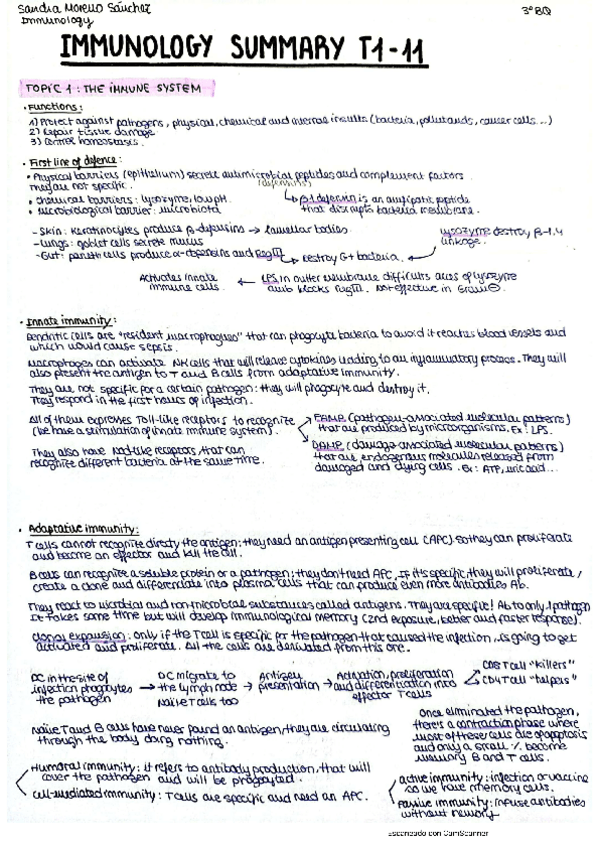 Sandra Moreno Sánchez
Immunology
3º BQ
IMMUNOLOGY SUMMARY T1-11
TOPIC 1: THE IMMUNE SYSTEM
· Functions:
1) Protect against pathogens, physical, chemical and internal insults (bacteria, pollutants, cancer cells...)
2) Repair tissue damage
3) Control homeostasis.
· First line of defence:
• Physical barriers (epithelium) secrete antimicrobial peptides and complement factors
(defensins)
they are not specific.
• Chemical barriers: lysozyme, low pH.
• Microbiological barrier: microbiota
β-1 defensin is an amfipatic peptide
that disrupts bacteria membrane.
- Skin: keratinocytes produce β-defensins → lamellar bodies
- Lungs: goblet cells secrete mucus
- Gut: paneth cells produce α-defensins and RegIII
Destroy G+ bacteria
lysozyme destroy β-1.4
linkage.
Activates innate
immune cells
← LPS in outter membrane difficults acces of lysozyme
and blocks RegIII. Not effective in Gram⊖
· Innate immunity:
Dendritic cells are "resident macrophagues" that can phagocyte bacteria to avoid it reaches blood vessels and
which would cause sepsis.
Macrophages can activate NK cells that will release cytokines leading to an inflammatory process. They will
also present the antigen to T and B cells from adaptative immunity.
They are not specific for a certain pathogen: they will phagocyte and destroy it.
They respond in the first hours of infection.
All of them expresses Toll-like receptors to recognize
(we have a stimulation of innate immune system).
PAMP (pathogen-associated molecular patterns)
that are produced by microorganisms. Ex: LPS.
DAMP (damage-associated molecular patterns)
that are endogenous molecules released from
damaged and dying cells. Ex: ATP, uric acid...
They also have Nod-like receptors that can
recognize different bacteria at the same time.
· Adaptative immunity:
T cells cannot recognize directly the antigen: they need an antigen presenting cell (APC) so they can proliferate
and become an effector and kill the cell.
B cells can recognize a soluble protein or a pathogen; they don't need APC. If it's specific, they will proliferate,
create a clone and differentiate into plasma cells that can produce even more antibodies Ab.
They react to microbial and non-microbial substances called antigens. They are specific! Ab to only 1 pathogen
It takes some time but will develop immunological memory (2nd exposure, better and faster response).
Clonal expansion: only if the T cell is specific for the pathogen that caused the infection, is going to get
activated and proliferate. All the cells are derivated from this one.
DC in the site of
infection phagocytes
the pathogen
→ DC migrate to
the lymph node
Naïve T cells too
→ Antigen
presentation
→ Activation, proliferation
and differentiation into
effector T cells
CD8 T cell "killers"
CD4 T cell "helpers"
Naïve T and B cells have never found an antigen, they are circulating
through the body doing nothing.
Once eliminated the pathogen,
there's a contraction phase where
most of these cells die of apoptosis
and only a small % become
memory B and T cells.
Humoral immunity: it refers to antibody production, that will
cover the pathogen and will be phagocyted.
Cell-mediated immunity: T cells are specific and need an APC.
active immunity: infection or vaccine
so we have memory cells.
Passive immunity: infuse antibodies
without memory
Escaneado con CamScanner